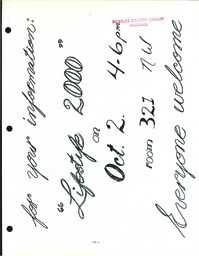 for your information:
"Lifestyle 2000"
on
Oct. 2. 4-6pm
room 321 N.W.
Everyone welcome
DOUGLAS COLLEGE LIBRARY
ARCHIVES